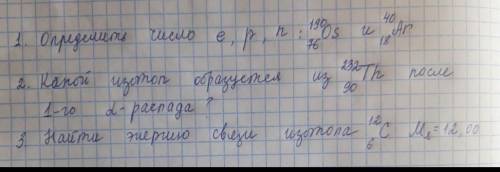 1. Определите число e, p, n : ¹⁹⁰₇₆Os и ⁴⁰₁₈Ar
2. Какой изотоп образуется из ²³²₉₀Th после
1-го α-распада ?
3. Найти энергию связи изотопа ¹²₆C Mя = 12,00